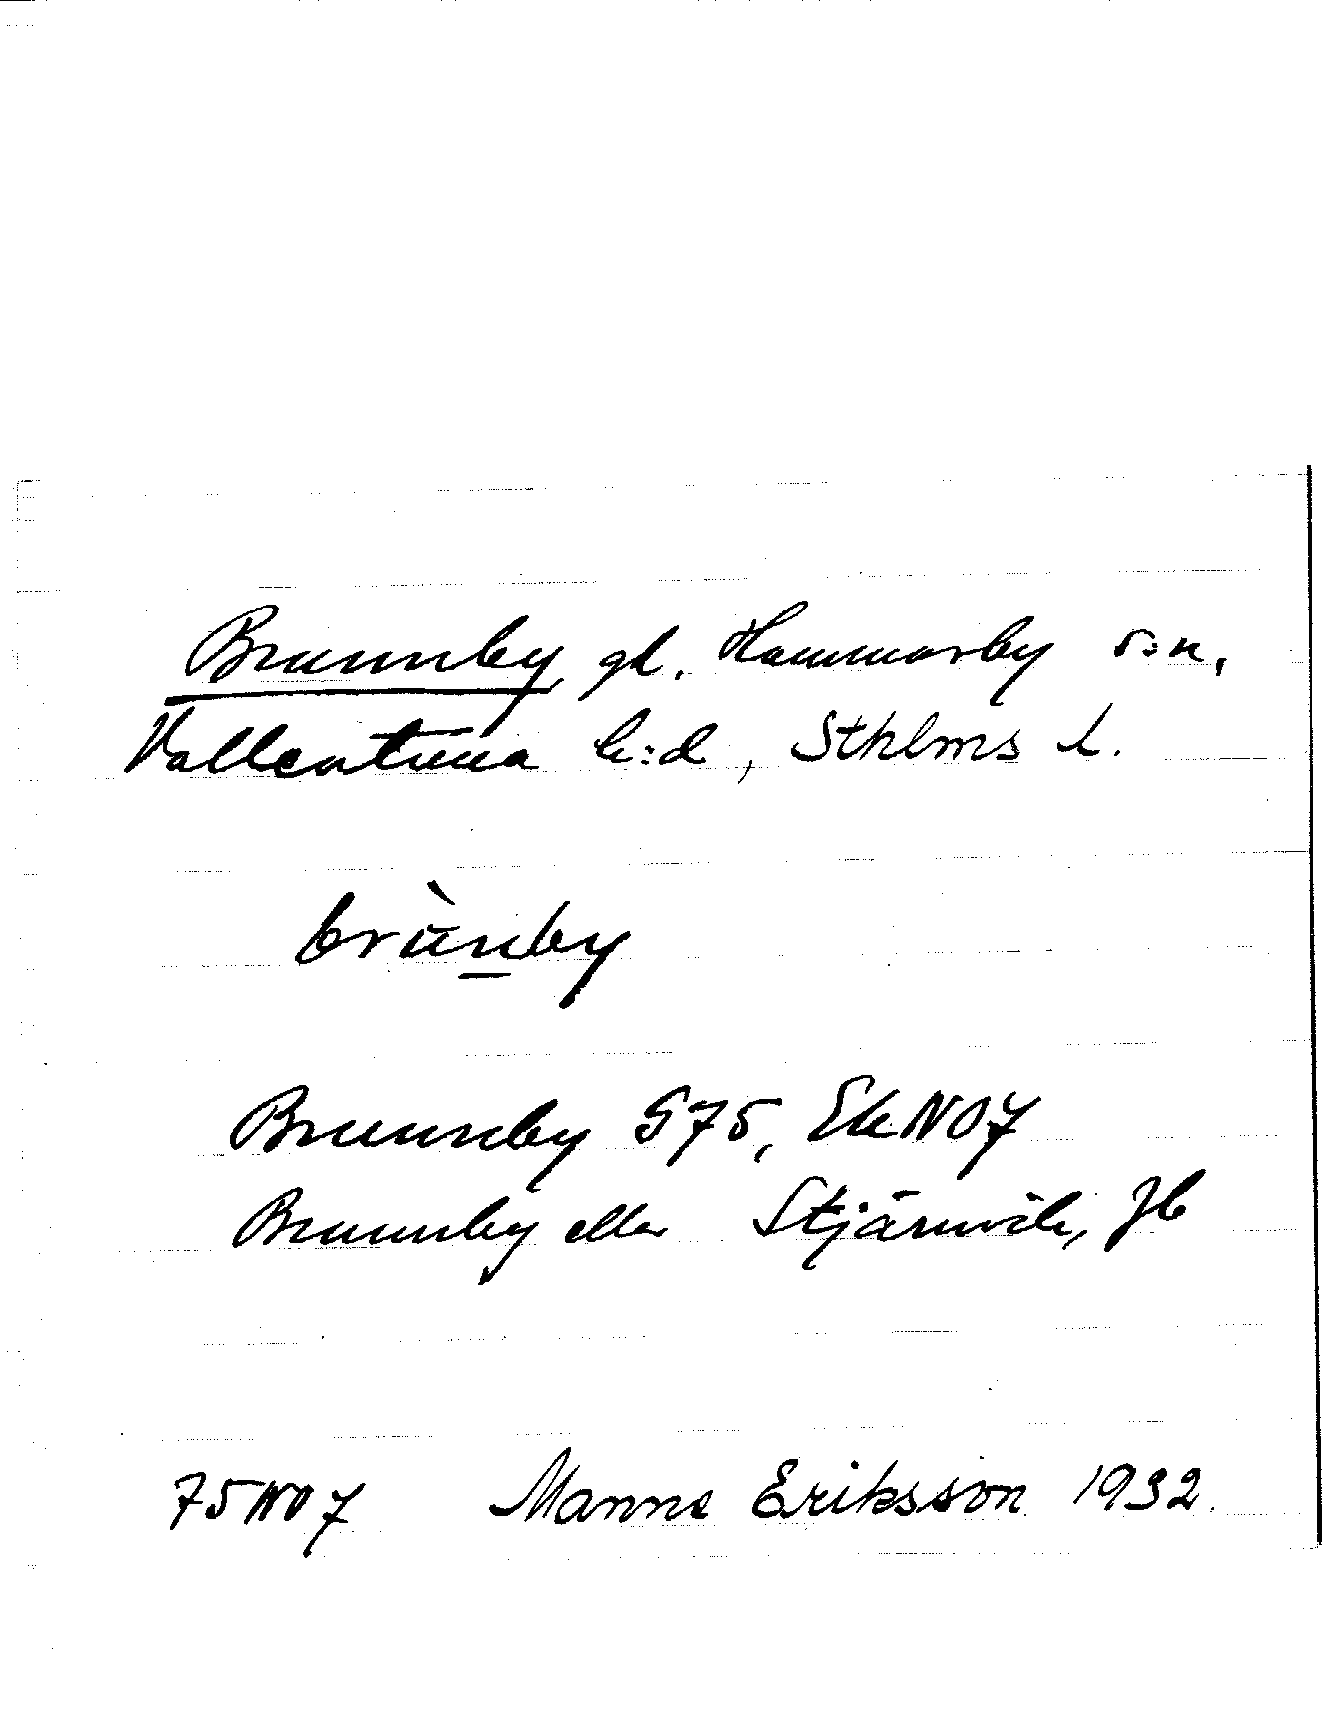 Brunnby gd. Hammarby s:n,
Vallentuna h:d, Sthlms l.
brùnby
Brunnby G75, EkNO7
Brunnby eller Stjärnvik, Jb
75NO7 Manne Eriksson 1932.